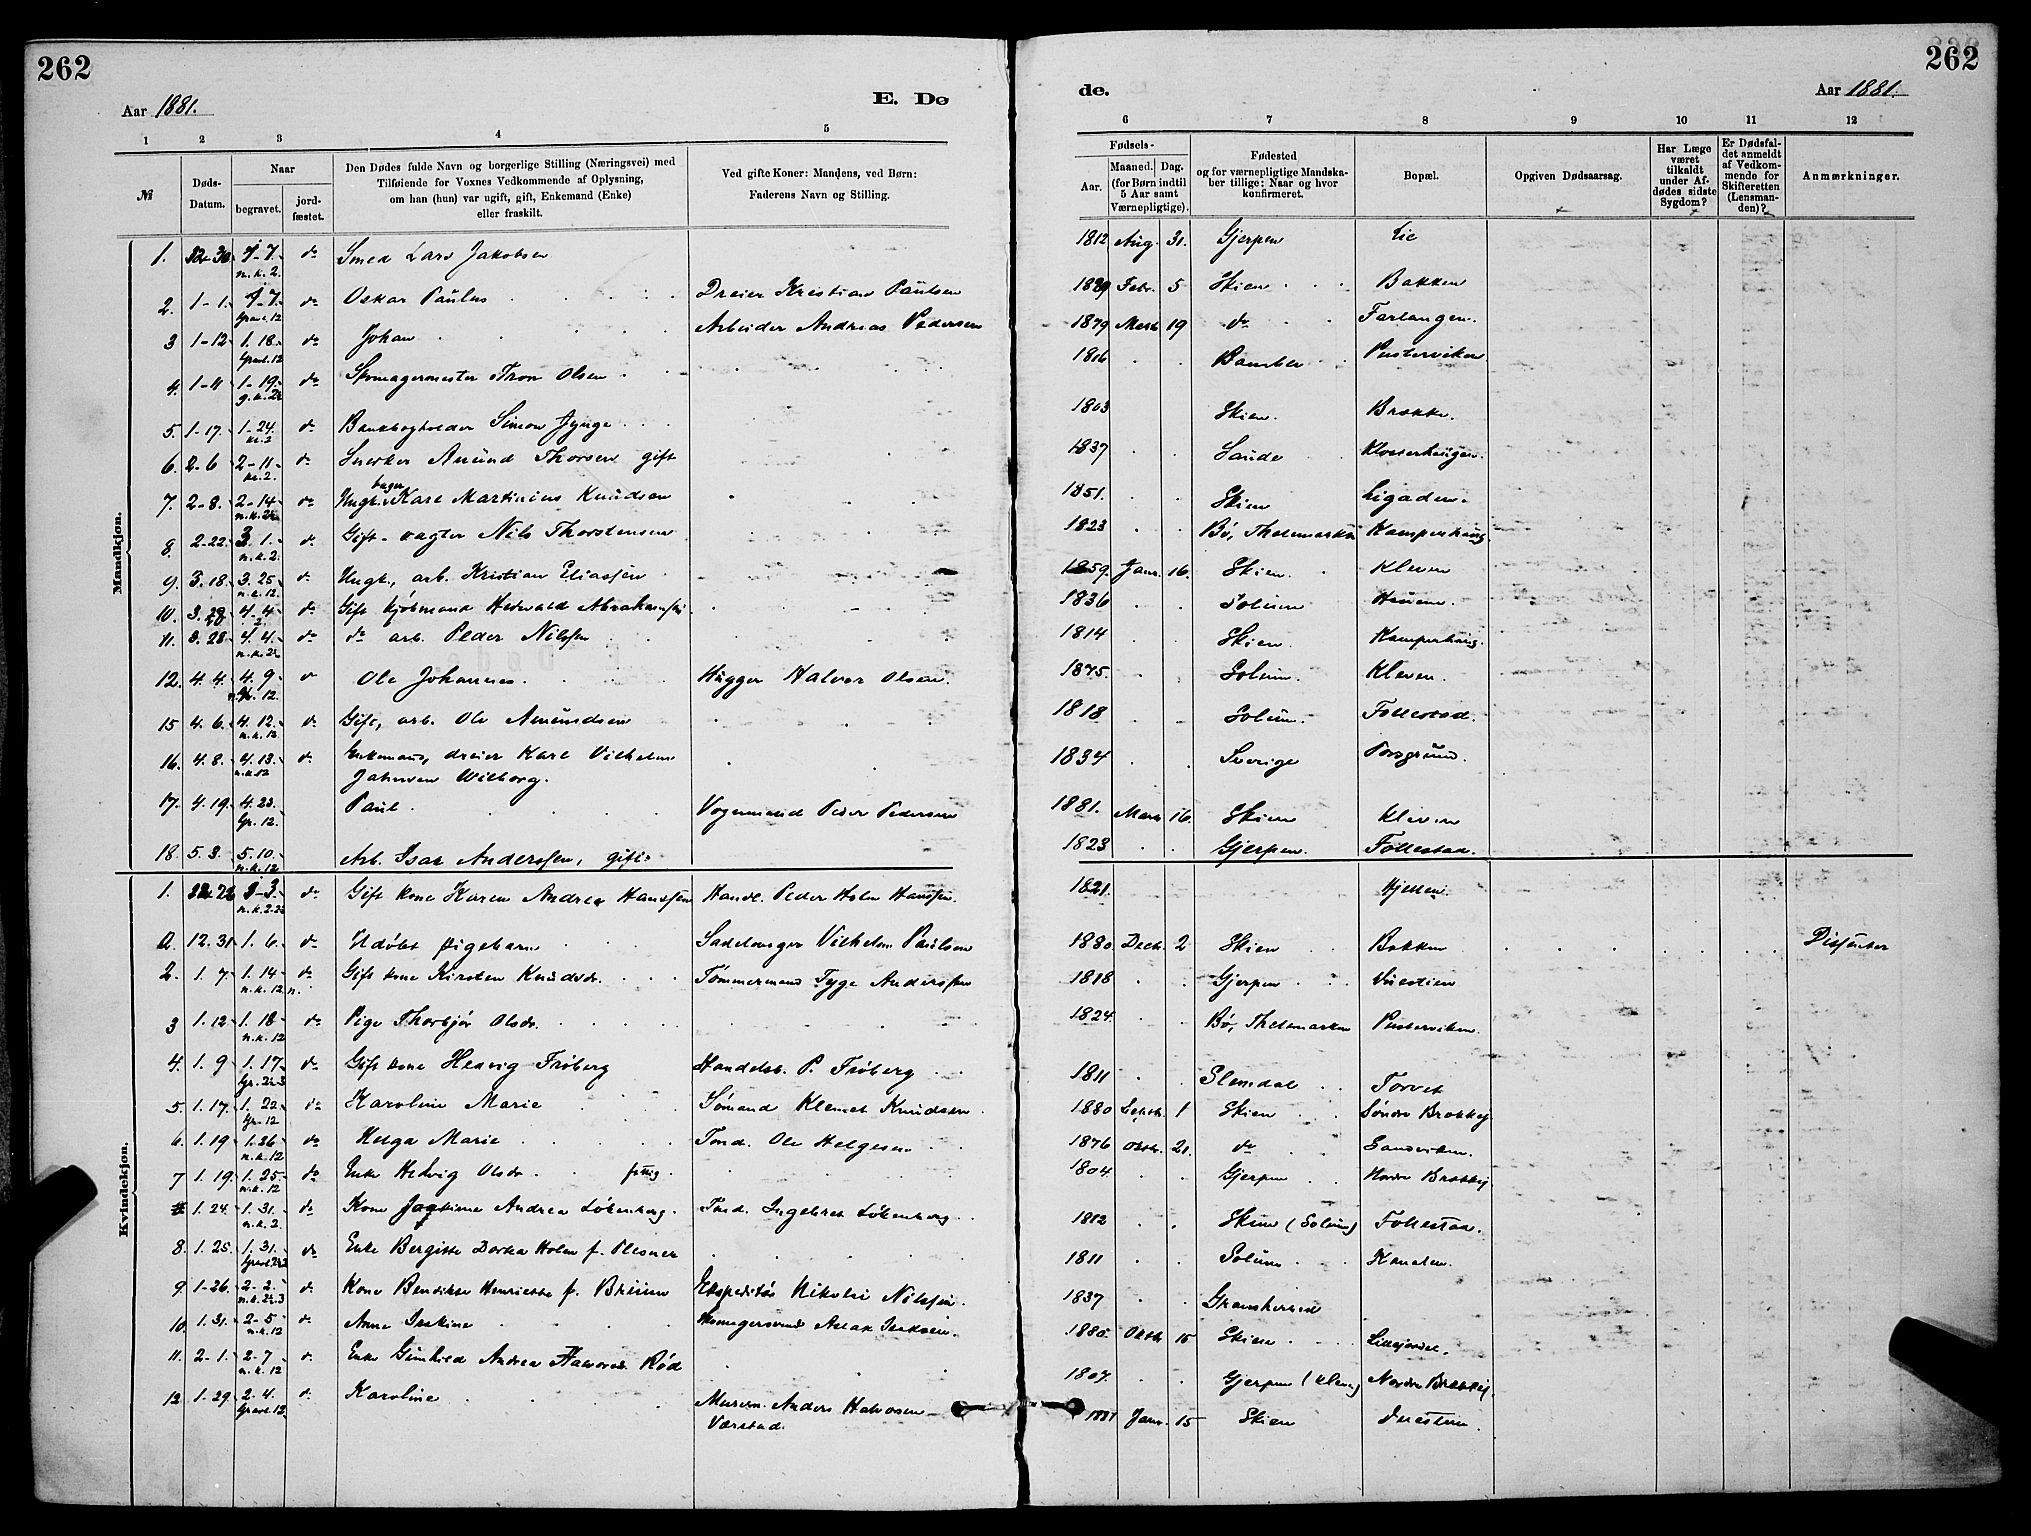 262
262
Aar 1881.
E. Dø
de.
Aar 1881.
1 2 3 4 5 6 7 8 9 10 11 12
№ Døds-Datum. Naar begravet. jordfæstet. Den Dødes fulde Navn og borgerlige Stilling (Næringsvei) med Tilføiende for Voxnes Vedkommende af Oplysning, om han (hun) var ugift, gift, Enkemand (Enke) eller fraskilt. Ved gifte Koner: Mandens, ved Børn: Faderens Navn og Stilling. Fødsels- Aar. Maaned. Dag. (for Børn indtil 5 Aar samt Værnepligtige). Fødested og for værnepligtige Mandskaber tillige: Naar og hvor konfirmeret. Bopæl. Opgiven Dødsaarsag. Har Læge været tilkaldt under Afdødes sidste Sygdom? Er Dødsfaldet anmeldt af Vedkommende for Skifteretten (Lensmanden)? Anmærkninger.
Mandkjøn.
1. 12-30 1-7 n.k.2. do Smed Lars Jakobsen 1812 Aug. 31. Gjerpen Lie
2. 1-1. 1-7. Gravl.12 do Oskar Paulus Dreier Kristian Paulsen Febr. 5 Skien Bakken
3 1-12 1.18. Gravl.12 do Johan Arbeider Andreas Pedersen 1879 Marts 19 do Farlangen.
4. 1-11 1-19. do Skomagermester Tron Olsen 1816 Bamble Pusterviken
5. 1-17. 1-24. kr.2 do Bankbogholder Simon 1803 Skien. Brække.
6. 2-6 2-11 kr.2. do Snerker Amund Thorsen gift 1837 Sande Klosterhaugen.
7. 2-8. 2-14 do Ungk. bager Karl Martinius Knudsen 1851. Skien Ligaden.
8. 2-22. 3.1. n.k.2. do Gift - vagter Nils Thorstensen 1823 Bø, Thelemarken Kamperhaug
9. 3.18. 3.25 n.k.12. do Ungk., arb. Kristian Eliassen 1859. Janr. 16. Skien. Kleven
10. 3.28 4.4 do Gift kjøbmand Hedevald Abrahamsen 1836 Solum
11. 3.28 4.4. do do arb. Peder Nilssen 1814 Skien. Kamperhaug.
12. 4.4. 4.9 12. do Ole Johannes. Hugger Halvor Olsen. 1875. Solum. Kleven.
15 4.6. 4.12. n.k.12. do Gift, arb. Ole Amundsen 1818 Solum. Follestad.
16. 4.8. 4.13. n.k.12 do Enkemand, dreier Karl Vilhelm 1834 Sverige Porsgrund.
Johnsen Wilborg.
17. 4.19. 4.23. Gr.12. Paul Vogermand Peder Pedersen 1881. Marts 16. Skien Kleven
18. 5.3. 5.10. n.k.12 Arb. Isak Anderssen, gift. 1823 Gjerpen. Follestad.
Kvindekjøn.
1. 12-22 1-3. do Gift kone Karen Andrea Hanssen Handl. Peder Holm Hanssen. 1821. Hjellen.
a. 12.31 1.6. do Udøbt pigebarn Sadelmager Vilhelm Paulsen 1880 Decb. 2 Skien Bakken Dissenter
2. 1.7. 1.14 n.k.12 do Gift kone Kirsten Knudsdr. Tømmermand Tyge Anderssen 1818 Gjerpen
3 1.12 1.18 n.k.12 do Pige Thorbjør Olsdr. 1824. Bø, Thelemarken Pusterviken.
4. 1.9 1.17 do Gift kone Hedvig Frøberg Handelsb. P. Frøberg 1811 Slemdal Torvet
5. 1.17. 1.22 Gr.12 do Karoline Marie Sømand Klemet Knudsen 1880 Septb. 1 Skien Søndre Brækkej
6. 1.19 1.26 n.k.12 do Helga Marie Tønd. Ole Helgesen 1876 Oktb. 21. do Sandviken.
7 1.19. 1.25. n.k.12 do Enke Hedvig Olsdr. fattig. 1804. Gjerpen Nordre Brækkej
1.24. 1.31. n.k.2. do Kone Andrea Løkenberg. Tønd. Ingebret Løkenberg 1812 Skien (Solum) Follestad.
8. 1.25. 1.31. do Enke Bergitte Dorthea Holm f. Plesner 1811 Solum Kanalen.
9 1-26. 2-2. do Kone Bendikte Henriette f. Bruun Ekspeditør Nikolai Nilssen. 1837 Gransherred
10. 1.31. 2-5 n.k.12 do Anne Iseline Skomagersvend Aslak Isaksen. 1880. Oktb. 15 Skien Lillejordet.
11. 2-1. 2-7 n.k.12 do Enke Gunhild Andrea Halvorsd. Rød 1807. Gjerpen (Klev) Nordre Brækkej
12 1-29. 2-4. Gravl.12. do Karoline Murerm. Anders Halvorsen 1881 Janr. 15 Skien
Værstad.